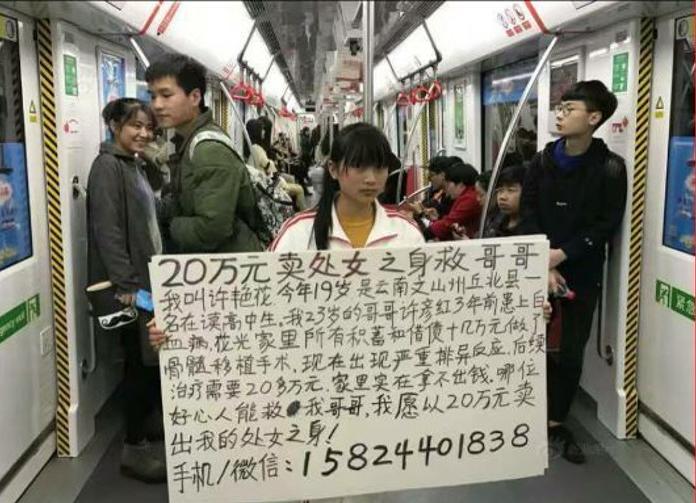 20万元卖处女之身救哥哥
我叫许艳花今年19岁是云南文山州丘北县一
名在读高中生.我23岁的哥哥许彦红3年前患上白
血病,花光家里所有积蓄和借债十几万元做了
骨髓移植手术,现在出现严重排异反应,后续
治疗需要20多万元,家里实在拿不出钱.哪位
好心人能救我哥哥,我愿以20万元卖
出我的处女之身!
手机/微信:15824401838